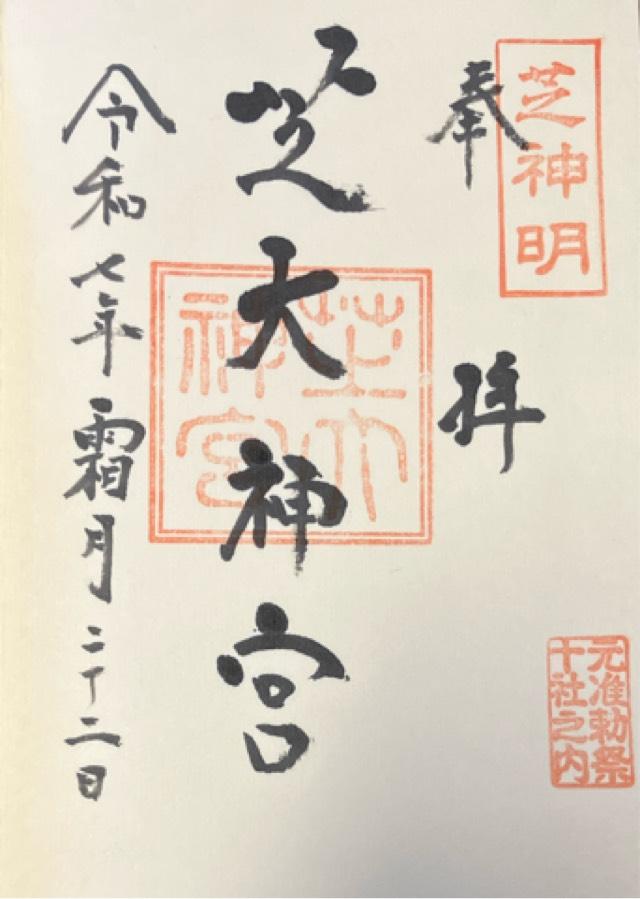 奉拝
芝神明
元准勅祭
十社之内
芝大神宮
芝大
神宮
令和七年霜月二十二日